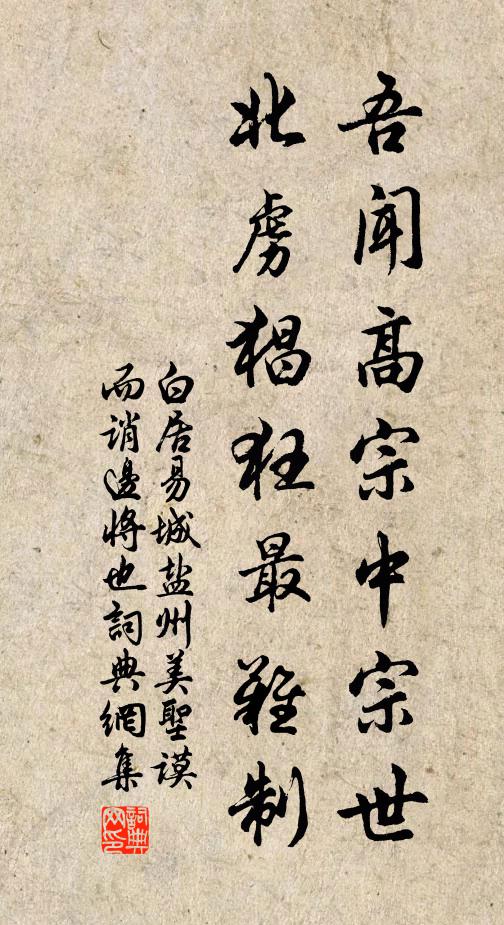 吾闻高宗中宗世
北虏猖狂最难制
白居易城盐州美聖谟
而诮邊将也詞典網集
詞典网印